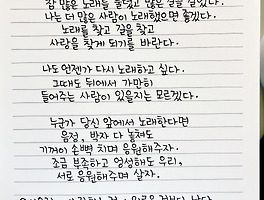 참 많은 노래를 들었고 많은 길을 걸었다.
나는 더 많은 사람이 노래했으면 좋겠다.
노래를 찾고 길을 찾고
사람을 찾게 되기를 바란다.
나도 언젠가 다시 노래하고 싶다.
그때도 뒤에서 가만히
들어주는 사람이 있을지는 모르겠다.
누군가 당신 앞에서 노래한다면
음정, 박자 다 놓쳐도
기꺼이 손뼉 치며 응원해주자.
조금 부족하고 엉성해도 우리,
서로 응원해주며 살자.